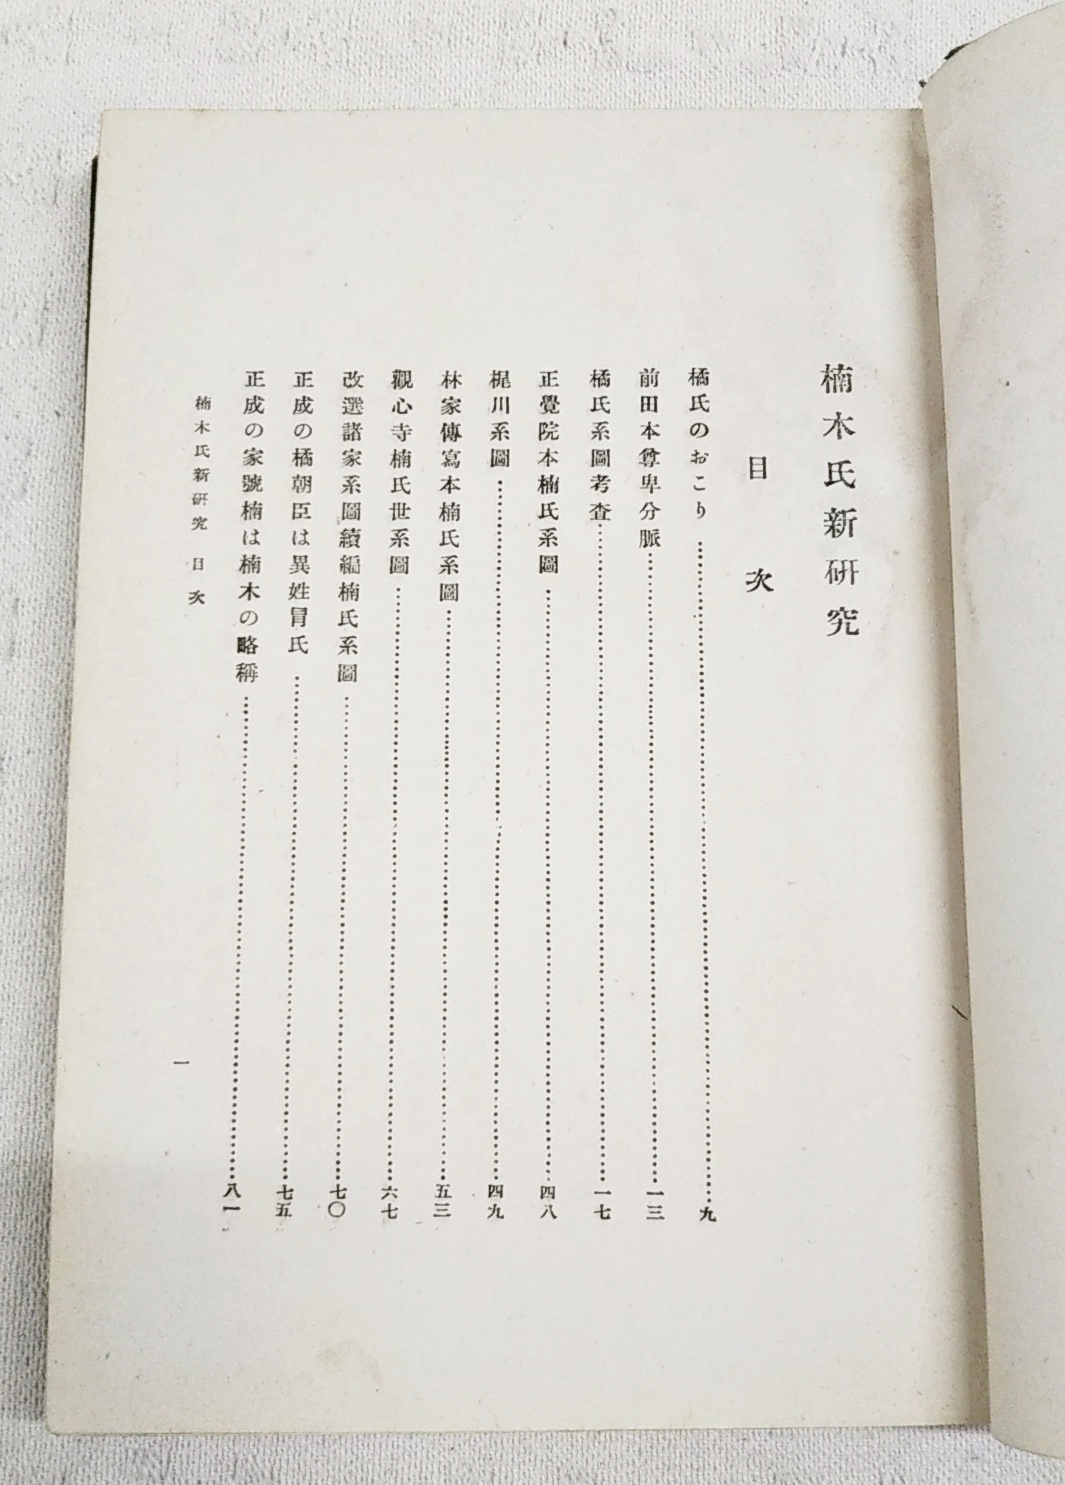 楠木氏新研究
目次
橘氏のおこり……九
前田本尊卑分脈……一三
橘氏系圖考査……一七
正覺院本楠氏系圖……四八
梶川系圖……四九
林家傳寫本楠氏系圖……五三
觀心寺楠氏世系圖……六七
改選諸家系圖續編楠氏系圖……七〇
正成の橘朝臣は異姓冐氏……七五
正成の家號楠は楠木の略稱……八一
楠木氏新研究 目次
一